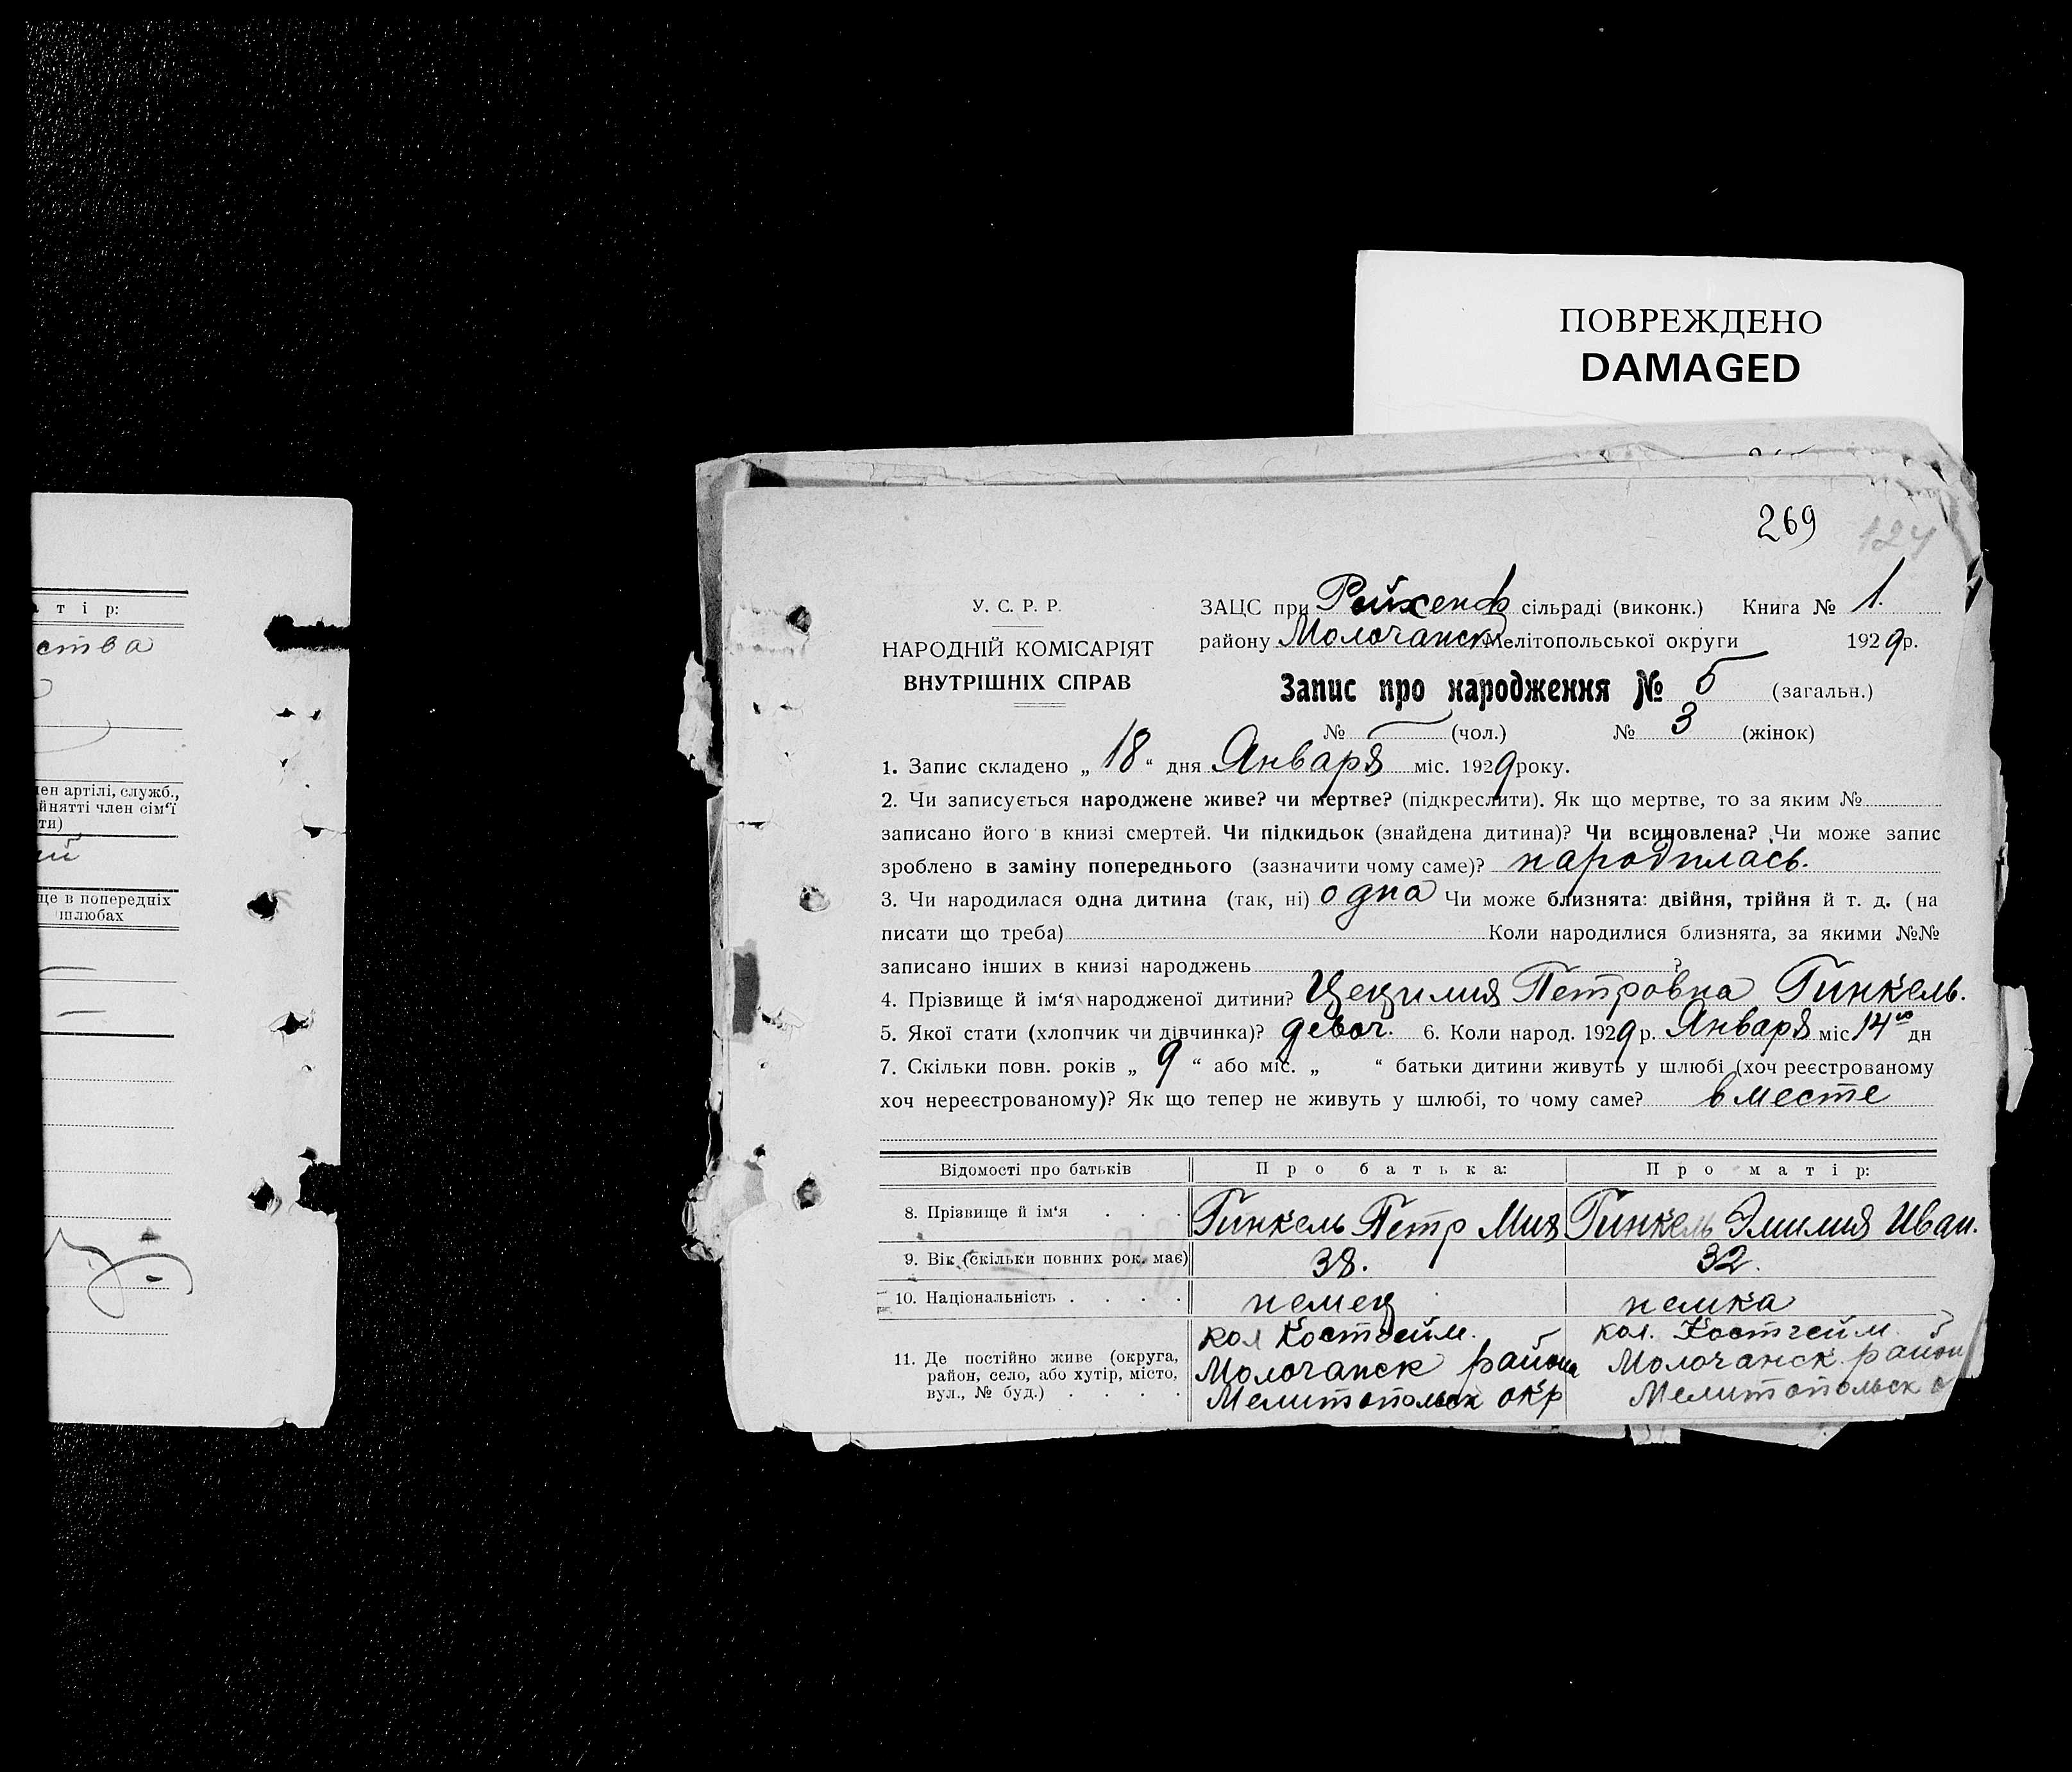 ПОВРЕЖДЕНО
DAMAGED
269
124
а т і р:
ства
ен артілі, служб.,
йнятті член сім'ї
ти)
ще в попередніх
шлюбах
У. С. Р. Р.
НАРОДНІЙ КОМІСАРІЯТ
ВНУТРІШНІХ СПРАВ
ЗАЦС при Рейхенф сільраді (виконк.) Книга № 1.
району Молочанск Мелітопольської округи 1929 р.
Запис про народження № 5 (загальн.)
№ — (чол.) № 3 (жінок)
1. Запис складено „ 18 “ дня Января міс. 1929 року.
2. Чи записується народжене живе? чи мертве? (підкреслити). Як що мертве, то за яким №
записано його в книзі смертей. Чи підкидьок (знайдена дитина)? Чи всиновлена? Чи може запис
зроблено в заміну попереднього (зазначити чому саме)? народилась.
3. Чи народилася одна дитина (так, ні) одна Чи може близнята: двійня, трійня й т. д. (на
писати що треба) Коли народилися близнята, за якими №№
записано інших в книзі народжень ?
4. Прізвище й ім'я народженої дитини? Цецилия Петровна Гинкель.
5. Якої стати (хлопчик чи дівчинка)? девоч. 6. Коли народ. 1929 р. Января міс 14го дн
7. Скільки повн. років „ 9 “ або міс. „ “ батьки дитини живуть у шлюбі (хоч реєстрованому
хоч нереєстрованому)? Як що тепер не живуть у шлюбі, то чому саме? вместе
Відомості про батьків Про батька: Про матір:
8. Прізвище й ім'я . . . Гинкель Петр Мих Гинкель Эмилия Иван.
9. Вік (скільки повних рок. має) 38. 32.
10. Національність . . . . немец немка
11. Де постійно живе (округа, район, село, або хутір, місто, вул., № буд.) . . . .
кол Костгейм. кол. Костгейм
Молочанск района Молочанск район
Мелитопольск окр Мелитопольск о